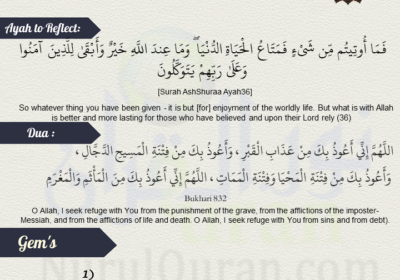 Ayah to Reflect:
فَمَا أُوتِيتُم مِّن شَيْءٍ فَمَتَاعُ الْحَيَاةِ الدُّنْيَا ۖ وَمَا عِندَ اللَّهِ خَيْرٌ وَأَبْقَىٰ لِلَّذِينَ آمَنُوا
وَعَلَىٰ رَبِّهِمْ يَتَوَكَّلُونَ
[Surah AshShuraa Ayah36]
So whatever thing you have been given - it is but [for] enjoyment of the worldly life. But what is with Allah
is better and more lasting for those who have believed and upon their Lord rely (36)
Dua :
اللَّهُمَّ إِنِّي أَعُوذُ بِكَ مِنْ عَذَابِ الْقَبْرِ ، وَأَعُوذُ بِكَ مِنْ فِتْنَةِ الْمَسِيحِ الدَّجَّالِ ،
وَأَعُوذُ بِكَ مِنْ فِتْنَةِ الْمَحْيَا وَفِتْنَةِ الْمَمَاتِ ، اللَّهُمَّ إِنِّي أَعُوذُ بِكَ مِنَ الْمَأْثَمِ وَالْمَغْرَمِ
Bukhari 832
O Allah, I seek refuge with You from the punishment of the grave, from the afflictions of the imposter-
Messiah, and from the afflictions of life and death. O Allah, I seek refuge with You from sins and from debt).
Gem's
NurulQuran.com
1)